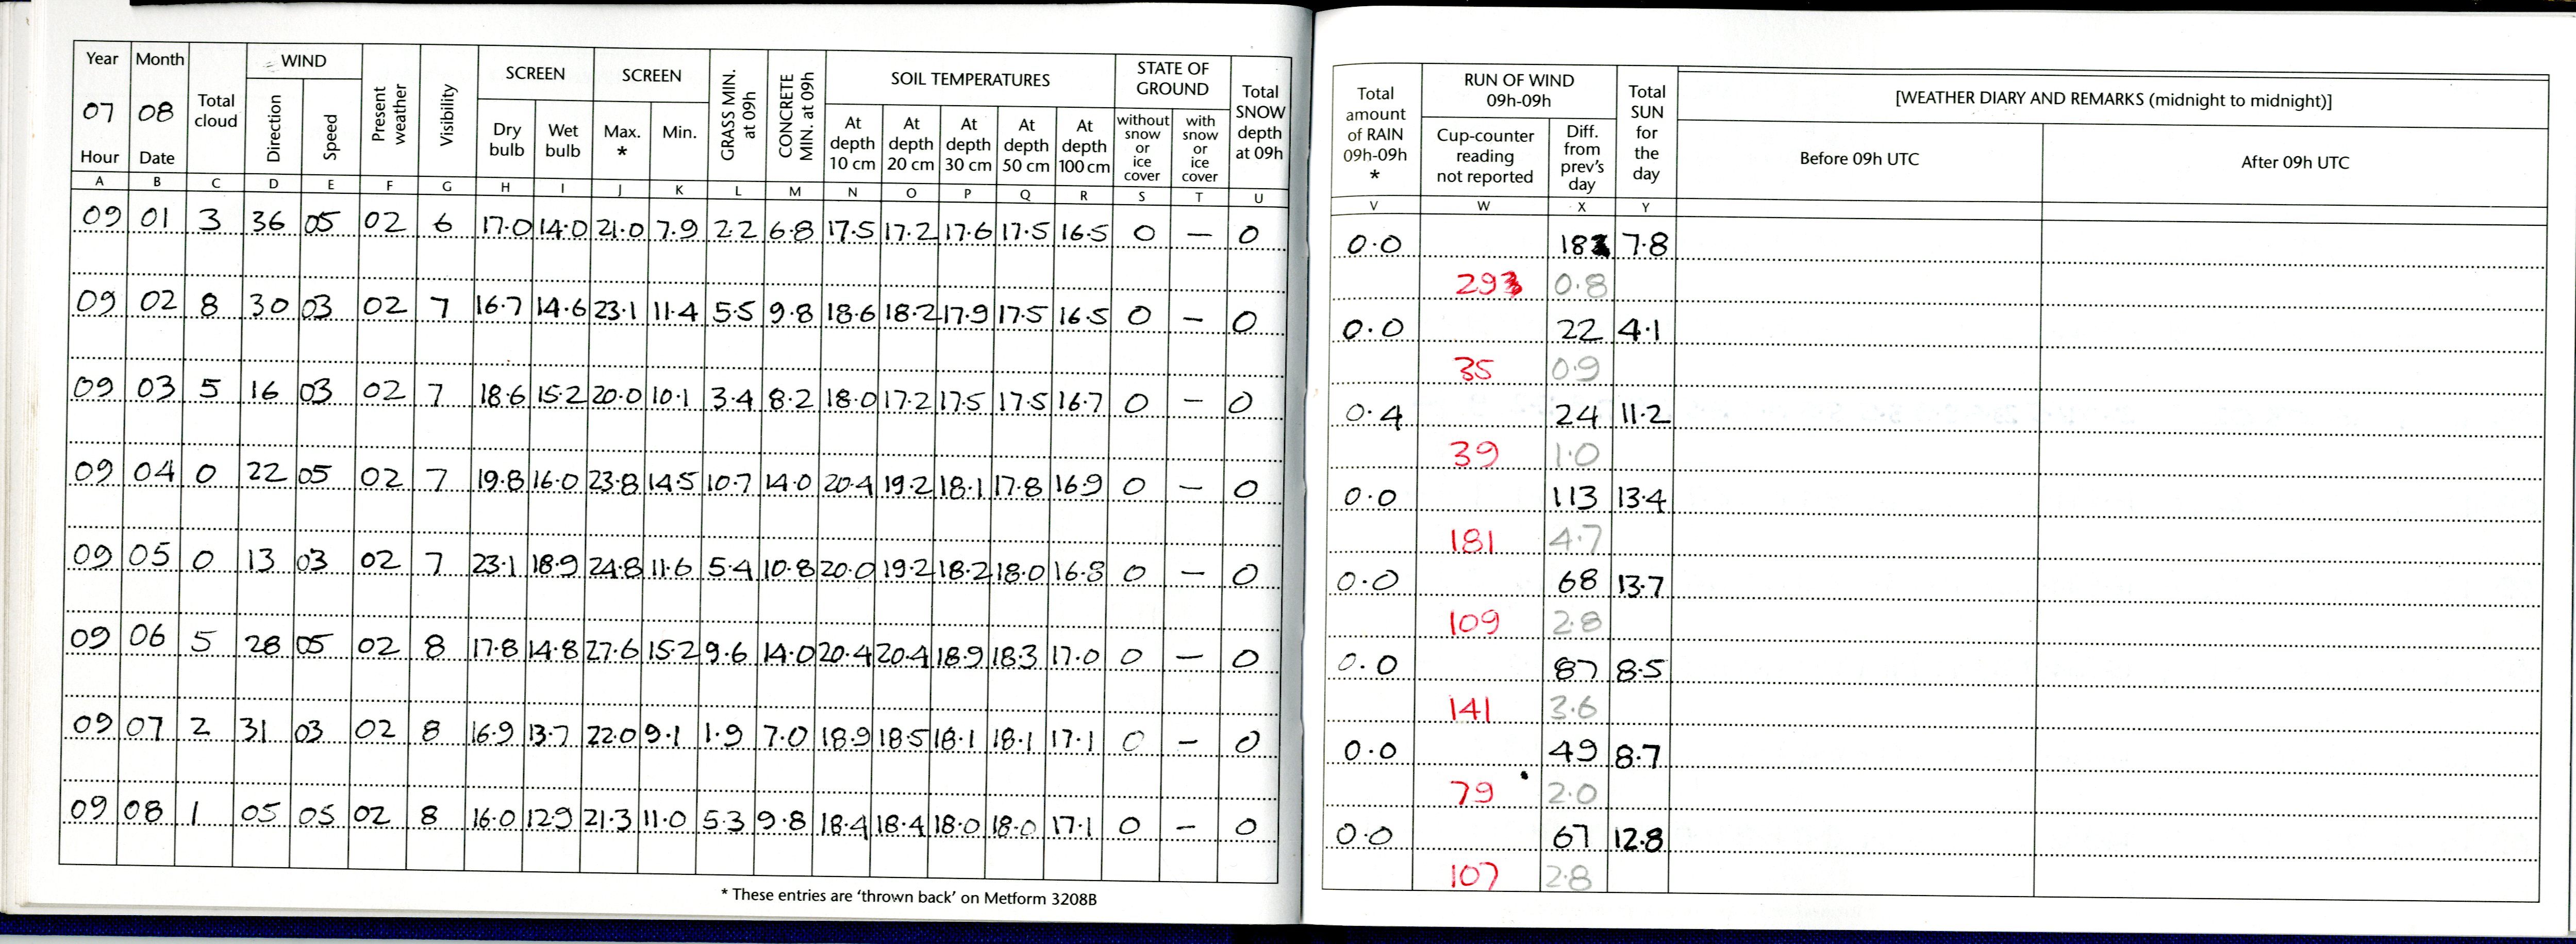 Year Month Total cloud WIND Present weather Visibility SCREEN SCREEN GRASS MIN. at 09h CONCRETE MIN. at 09h SOIL TEMPERATURES STATE OF GROUND Total SNOW depth at 09h
07 08 Direction Speed Dry bulb Wet bulb Max. * Min. At depth 10 cm At depth 20 cm At depth 30 cm At depth 50 cm At depth 100 cm without snow or ice cover with snow or ice cover
Hour Date
A B C D E F G H I J K L M N O P Q R S T U
09 01 3 36 05 02 6 17.0 14.0 21.0 7.9 2.2 6.8 17.5 17.2 17.6 17.5 16.5 0 – 0
09 02 8 30 03 02 7 16.7 14.6 23.1 11.4 5.5 9.8 18.6 18.2 17.9 17.5 16.5 0 – 0
09 03 5 16 03 02 7 18.6 15.2 20.0 10.1 3.4 8.2 18.0 17.2 17.5 17.5 16.7 0 – 0
09 04 0 22 05 02 7 19.8 16.0 23.8 14.5 10.7 14.0 20.4 19.2 18.1 17.8 16.9 0 – 0
09 05 0 13 03 02 7 23.1 18.9 24.8 11.6 5.4 10.8 20.0 19.2 18.2 18.0 16.8 0 – 0
09 06 5 28 05 02 8 17.8 14.8 27.6 15.2 9.6 14.0 20.4 20.4 18.9 18.3 17.0 0 – 0
09 07 2 31 03 02 8 16.9 13.7 22.0 9.1 1.9 7.0 18.9 18.5 18.1 18.1 17.1 0 – 0
09 08 1 05 05 02 8 16.0 12.9 21.3 11.0 5.3 9.8 18.4 18.4 18.0 18.0 17.1 0 – 0
* These entries are 'thrown back' on Metform 3208B
Total amount of RAIN 09h-09h * RUN OF WIND 09h-09h Total SUN for the day [WEATHER DIARY AND REMARKS (midnight to midnight)]
Cup-counter reading not reported Diff. from prev's day Before 09h UTC After 09h UTC
V W X Y
0.0 7.8
293 0.8
0.0 22 4.1
35 0.9
0.4 24 11.2
39 1.0
0.0 113 13.4
181 4.7
0.0 68 13.7
109 2.8
0.0 87 8.5
141 3.6
0.0 49 8.7
79 2.0
0.0 67 12.8
107 2.8